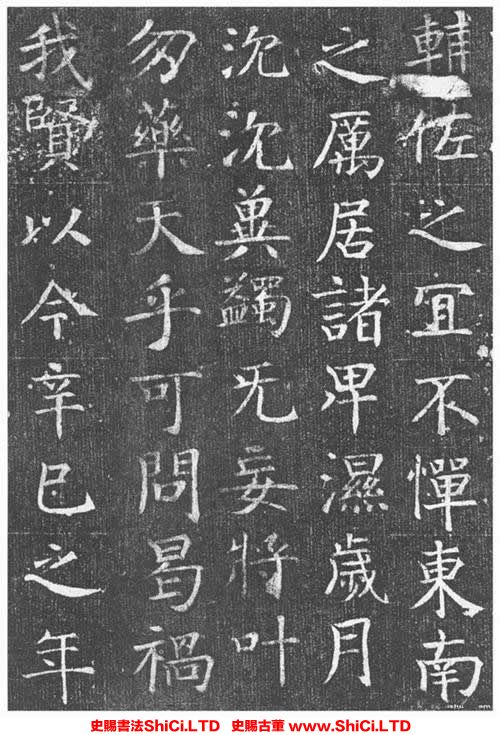 輔佐之宜不憚東南
之厲居諸卑濕歲月
沈沈冀蠲旡妄將叶
勿藥天乎可問曷禍
我賢以今辛巳之年
史賜書法ShiCi.LTD 史賜古董 www.ShiCi.LTD